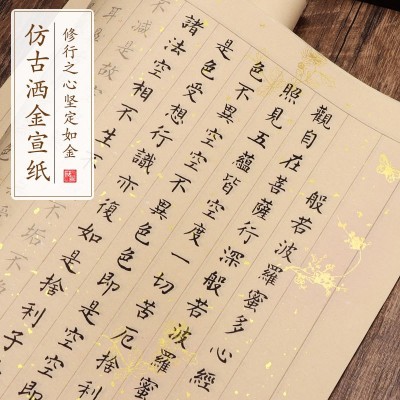 仿古洒金宣纸
修行之心坚定如金
般若波羅蜜多心經
觀自在菩薩行深般若波羅蜜
照見五蘊皆空度一切苦厄捨利
色不異空空不異色色即是空空即
是色受想行識亦復如是捨利子
諸法空相不生不
不垢不
不減是故
耳鼻